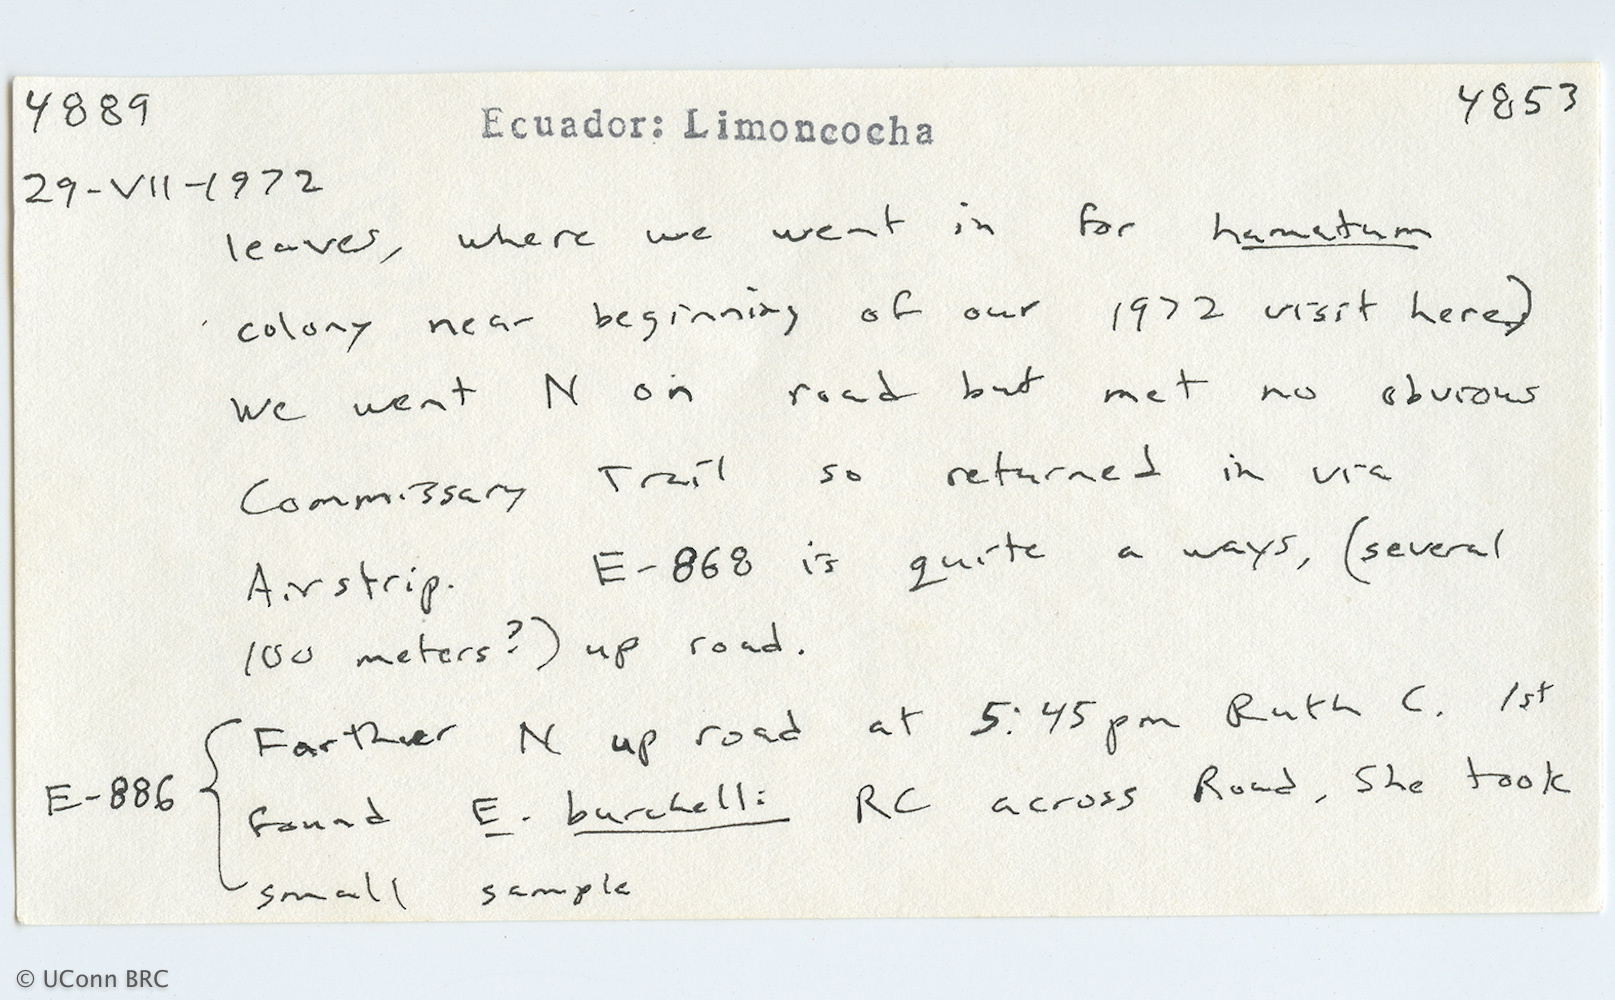 4889 Ecuador: Limoncocha 4853
29-VII-1972
leaves, where we went in for hamatum
colony near beginning of our 1972 visit here)
We went N on road but met no obvious
Commissary Trail so returned in via
Airstrip. E-868 is quite a ways, (several
100 meters?) up road.
Farther N up road at 5:45pm Ruth C. 1st
E-886 found E. burchelli RC across Road, She took
small sample
© UConn BRC